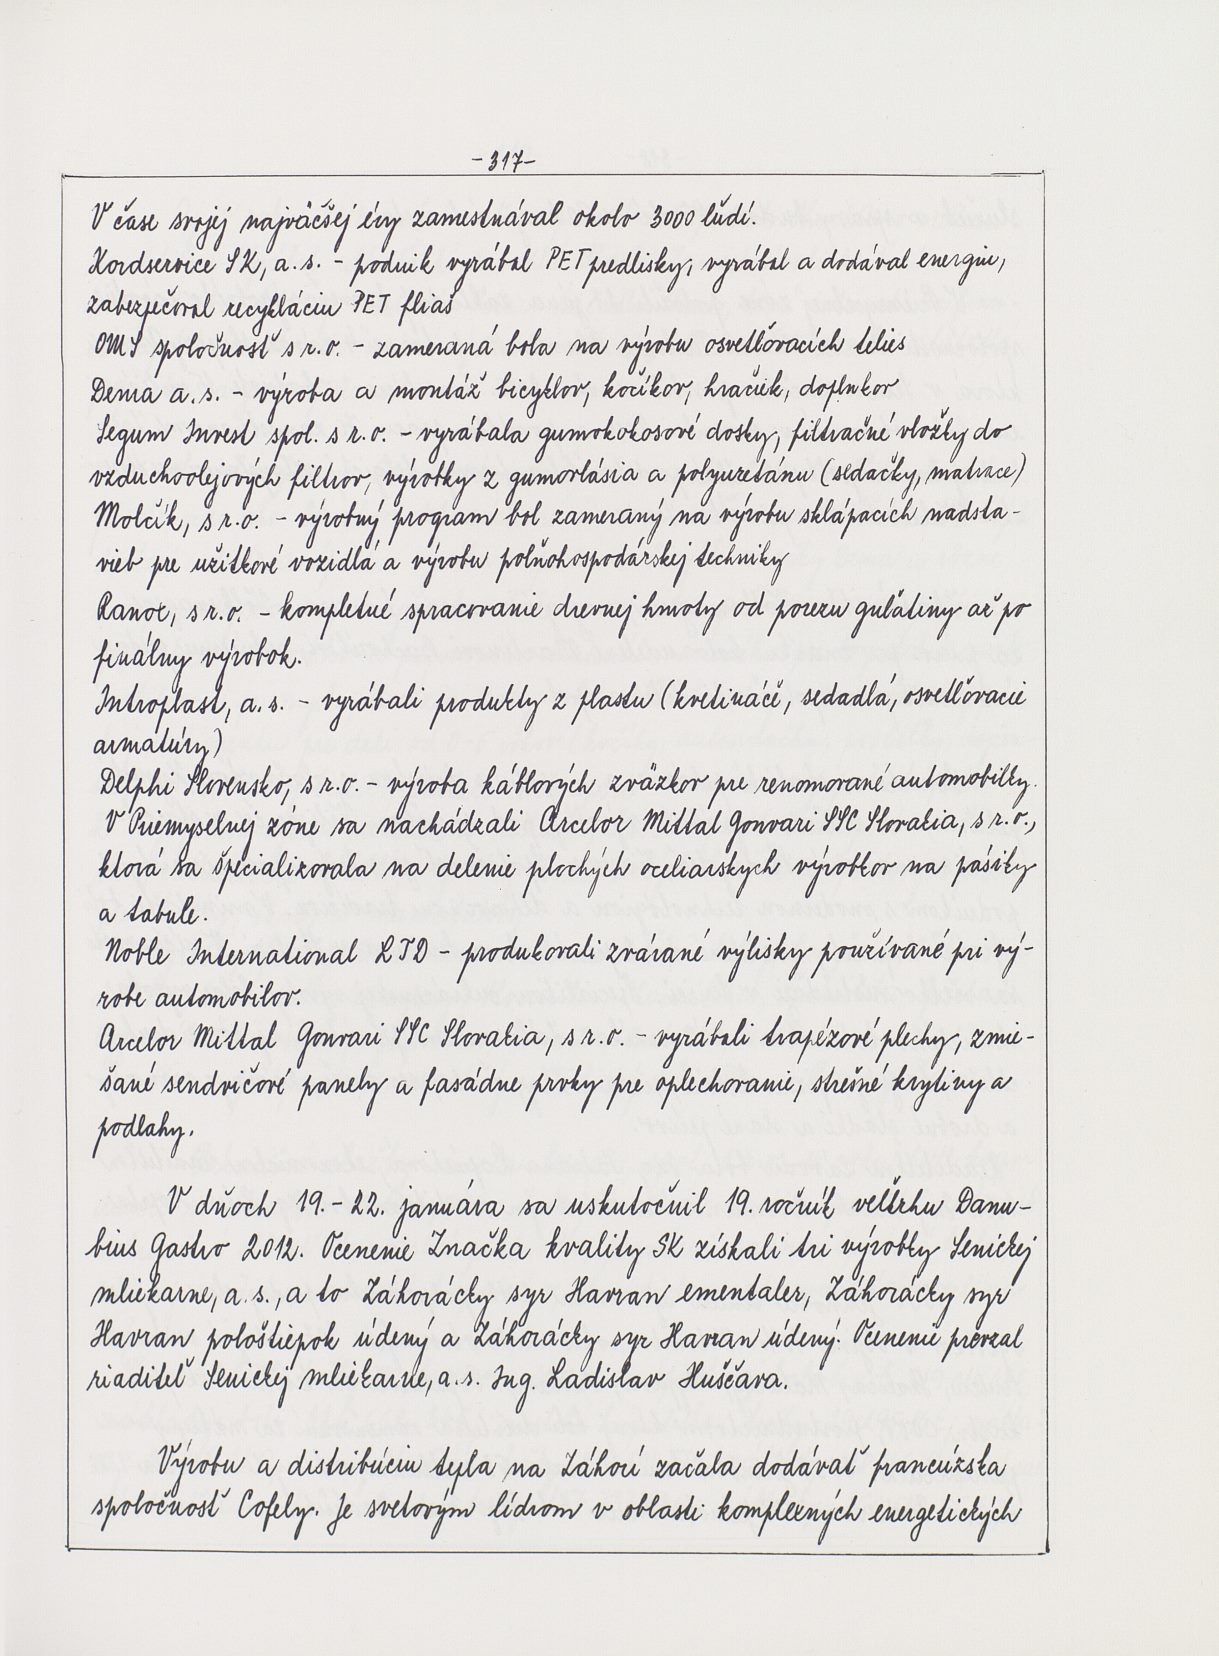 -317-
V čase svojej najväčšej éry zamestnával okolo 3000 ľudí.
Kordservice SK, a.s. - podnik vyrábal PET predlisky, vyrábal a dodával energiu,
zabezpečoval recykláciu PET fliaš
OMS spoločnosť s r.o. - zameraná bola na výrobu osvetľovacích telies
Dema a.s. - výroba a montáž bicyklov, kočíkov, hračiek, doplnkov
Segum Invest spol. s r.o. - vyrábala gumokokosové dosky, filtračné vložky do
vzduchoolejových filtrov, výrobky z gumovlásia a polyuretánu (sedačky, matrace)
Molčík, s r.o. - výrobný program bol zameraný na výrobu sklápacích nadsta-
vieb pre užitkové vozidlá a výrobu poľnohospodárskej techniky
Ranox, s r.o. - kompletné spracovanie drevnej hmoty od porezu guľatiny až po
finálny výrobok.
Introplast, a.s. - vyrábali produkty z plastu (kvetináče, sedadlá, osvetľovacie
armatúry)
Delphi Slovensko, s r.o. - výroba káblových zväzkov pre renomované automobilky.
V Priemyselnej zóne sa nachádzali Arcelor Mittal Gonvari SSC Slovakia, s r.o.,
ktorá sa špecializovala na delenie plochých oceliarskych výrobkov na pásiky
a tabule.
Noble International LTD - produkovali zvárané výlisky používané pri vý-
robe automobilov.
Arcelor Mittal Gonvari SSC Slovakia, s r.o. - vyrábali trapézové plechy, zmie-
šané sendvičové panely a fasádne prvky pre oplechovanie, strešné krytiny a
podlahy.
V dňoch 19.-22. januára sa uskutočnil 19. ročník veľtrhu Danu-
bius Gastro 2012. Ocenenie Značka kvality SK získali tri výrobky Senickej
mliekarne, a.s., a to Záhorácky syr Havran ementaler, Záhorácky syr
Havran pološtiepok údený a Záhorácky syr Havran údený. Ocenenie prevzal
riaditeľ Senickej mliekarne, a.s. Ing. Ladislav Huščava.
Výrobu a distribúciu tepla na Záhorí začala dodávať francúzska
spoločnosť Cofely. Je svetovým lídrom v oblasti komplexných energetických